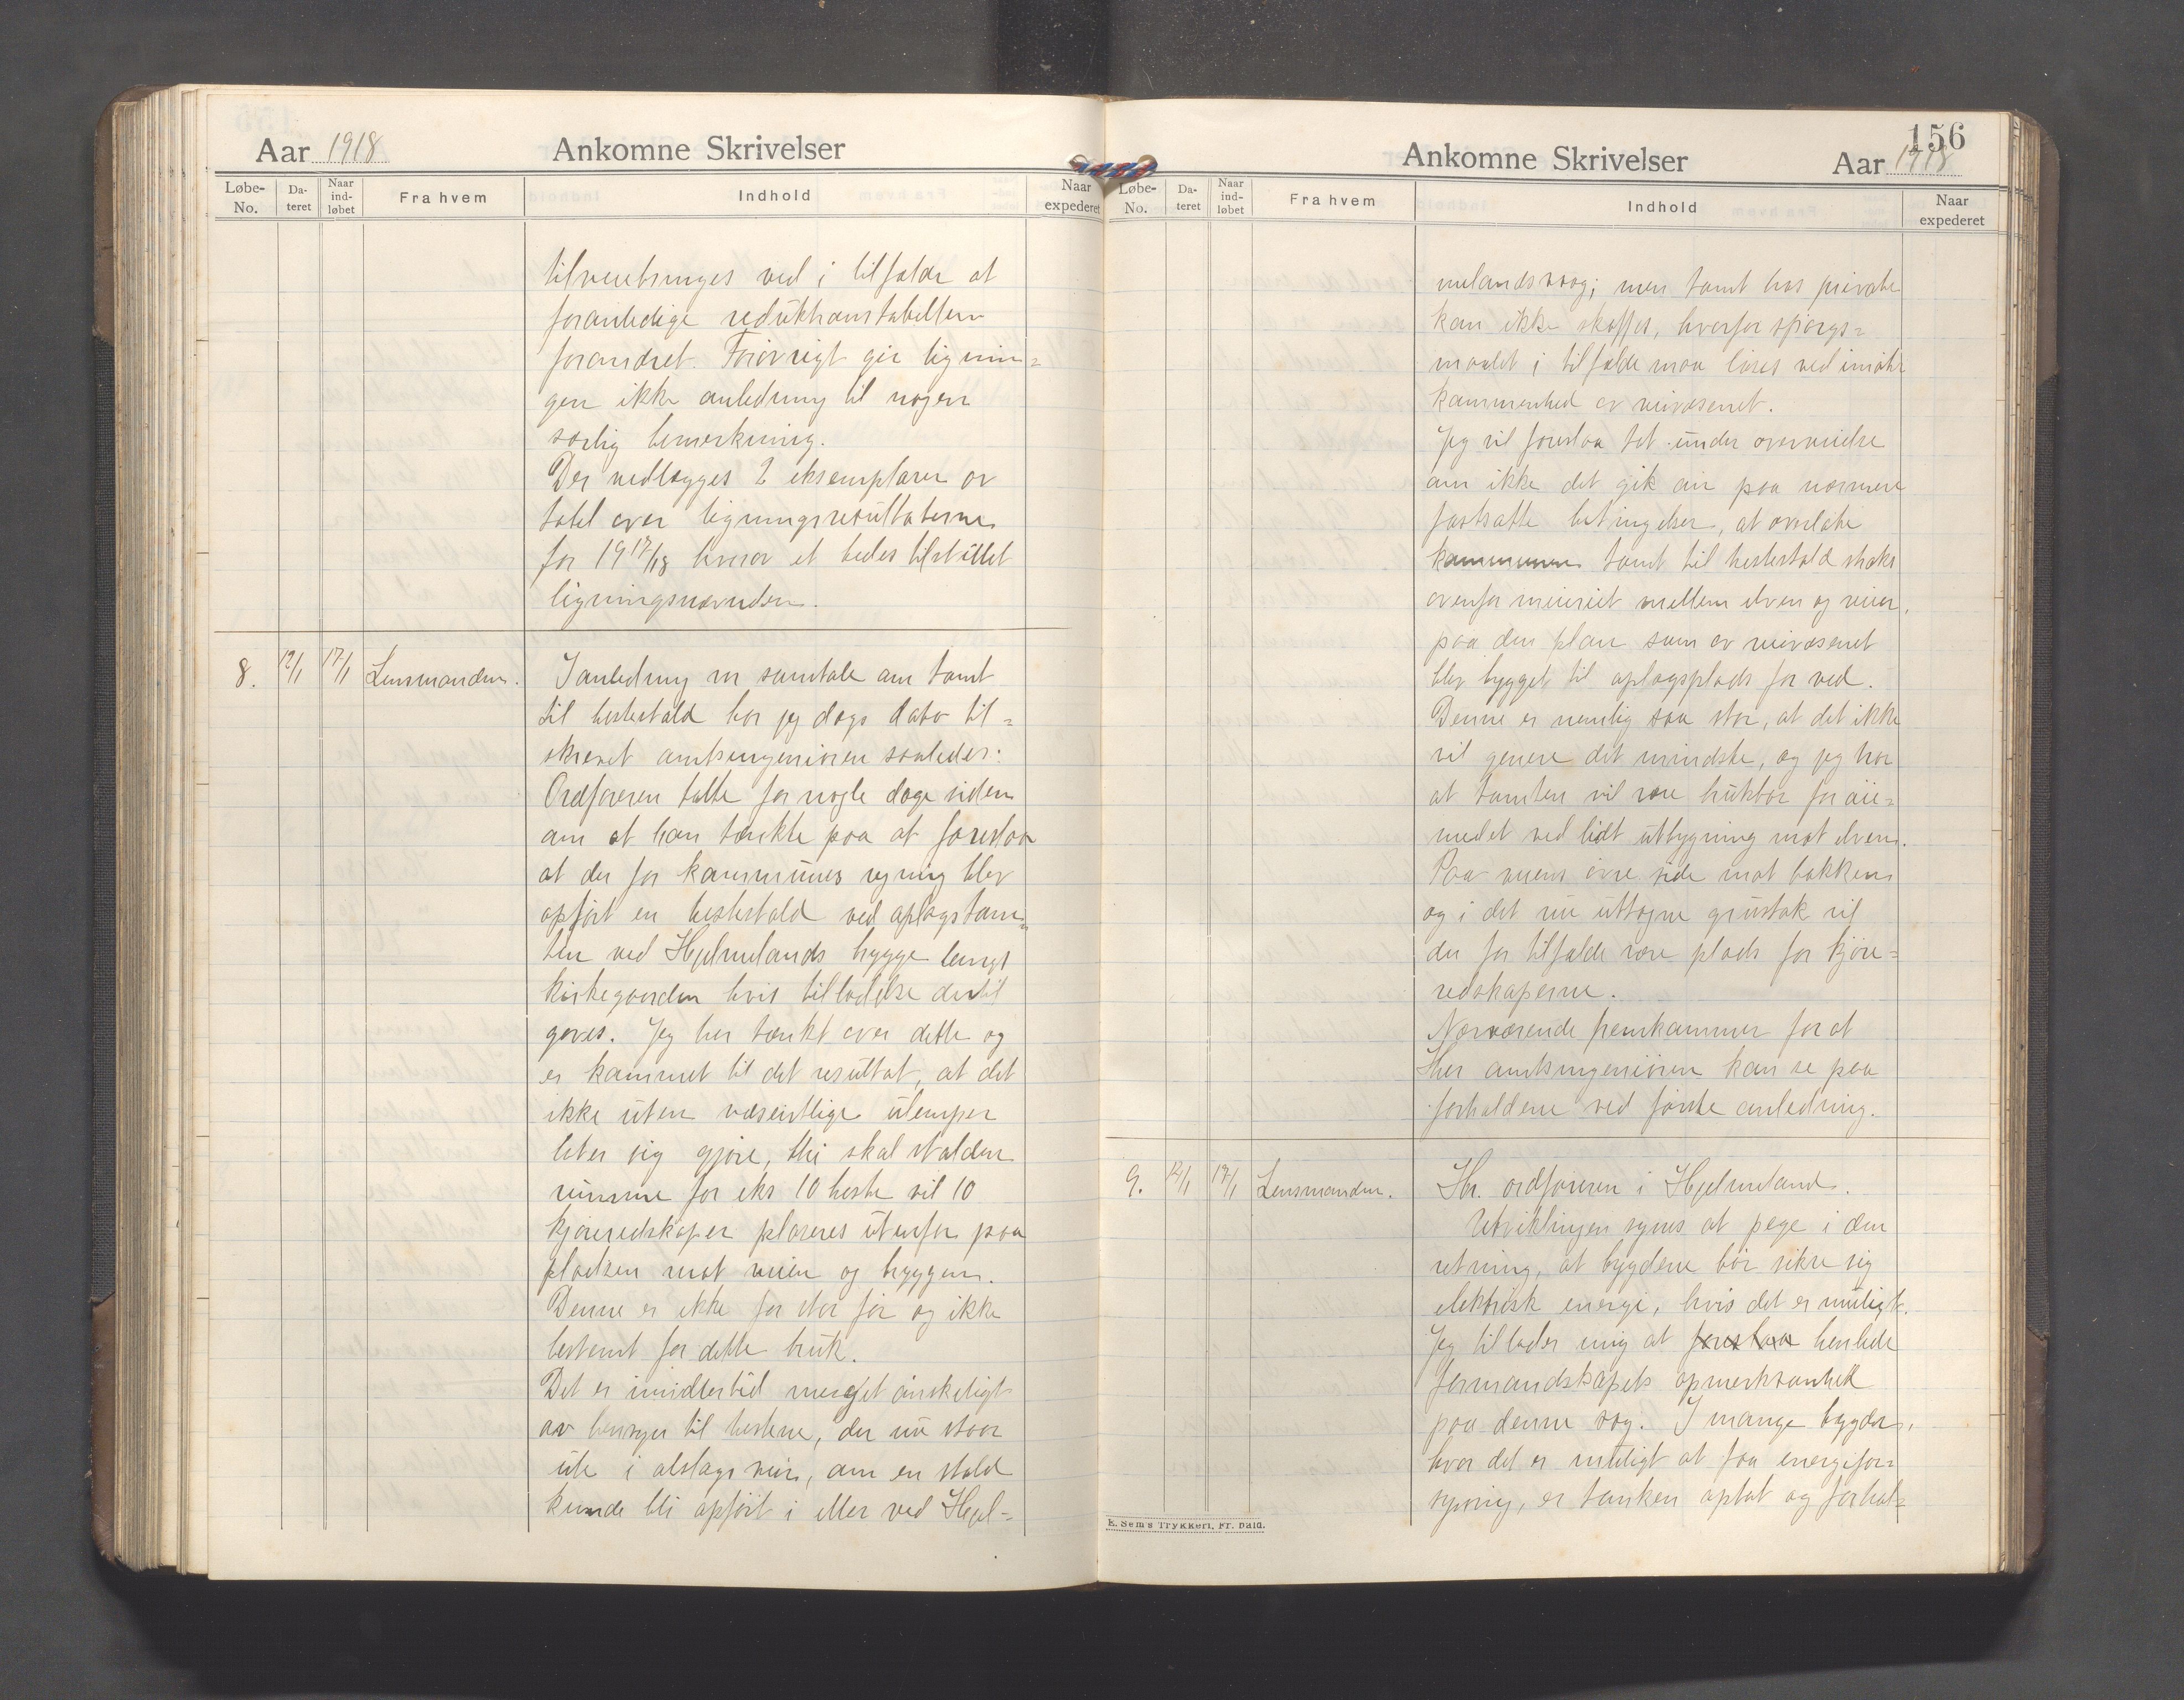 Aar 1918
Ankomne Skrivelser
Løbe-No.
Dateret
Naar indløbet
Fra hvem
Indhold
Naar expederet
tilveiebringes ved i tilfælde at
foranledige reduktionstabellen
forandret. Forøvrigt gir lignin=
gen ikke anledning til nogen
særlig bemerkning.
Der vedlægges 2 eksemplarer av
tabel over ligningsresultaterne
for 1917/18 hvorav et bedes tilstillet
ligningsnævnden.
8. 12/1 17/1 Lensmanden.
I anledning av samtale om tomt
til hestestald har jeg dags dato til=
skrevet amtsingeniøren saaledes:
Ordføreren talte for nogle dage siden
om at han tænkte paa at foreslaa
at der for kommunes regning blev
opført en hestestald ved oplagstom=
ten ved Hjelmelands brygge langs
kirkegaarden hvis tilladelse dertil
gaves. Jeg har tænkt over dette og
er kommet til det resultat, at det
ikke uten væsentlige ulemper
later sig gjøre, thi skal stalden
rumme for eks 10 heste vil 10
kjøreredskaper placeres utenfor paa
pladsen mot veien og bryggen.
Denne er ikke for stor før og ikke
bestemt for dette bruk.
Det er imidlertid meget ønskeligt
av hensyn til hestene, der nu staar
ute i alslags veir, om en stald
kunde bli opført i eller ved Hjel=
156
Ankomne Skrivelser
Aar 1918
Løbe-No.
Dateret
Naar indløbet
Fra hvem
Indhold
Naar expederet
melandsvaag; men tomt hos private
kan ikke skaffes, hvorfor spørgs=
maalet i tilfælde maa løses ved imøte
kommenhed av veivæsenet.
Jeg vil foreslaa tat under overveielse
om ikke det gik an paa nærmere
fastsatte betingelser, at overlate
kommunen tomt til hestestald straks
ovenfor meieriet mellem elven og veien,
paa den plan som av veivæsenet
blev bygget til oplagsplads for ved.
Denne er nemlig saa stor, at det ikke
vil genere det mindste, og jeg tror
at tomten vil være brukbar for øie=
medet ved lidt utbygning mot elven.
Paa veiens øvre side mot bakken
og i det nu uttagne grustak vil
der for tilfælde være plads for kjøre=
redskaperne.
Nærværende fremkommer for at
Her amtsingeniøren kan se paa
forholdene ved første anledning.
9. 12/1 17/1 Lensmanden.
Hr. ordføreren i Hjelmeland.
Utviklingen synes at pege i den
retning, at bygdene bør sikre sig
elektrisk energi, hvis det er muligt.
Jeg tillader mig at foreslaa henlede
formandskapets opmerksomhet
paa denne sag. I mange bygder,
hvor det er muligt at faa energifor=
syning, er tanken optat og forhol=
E. Sem's Trykkeri, Fr.hald.